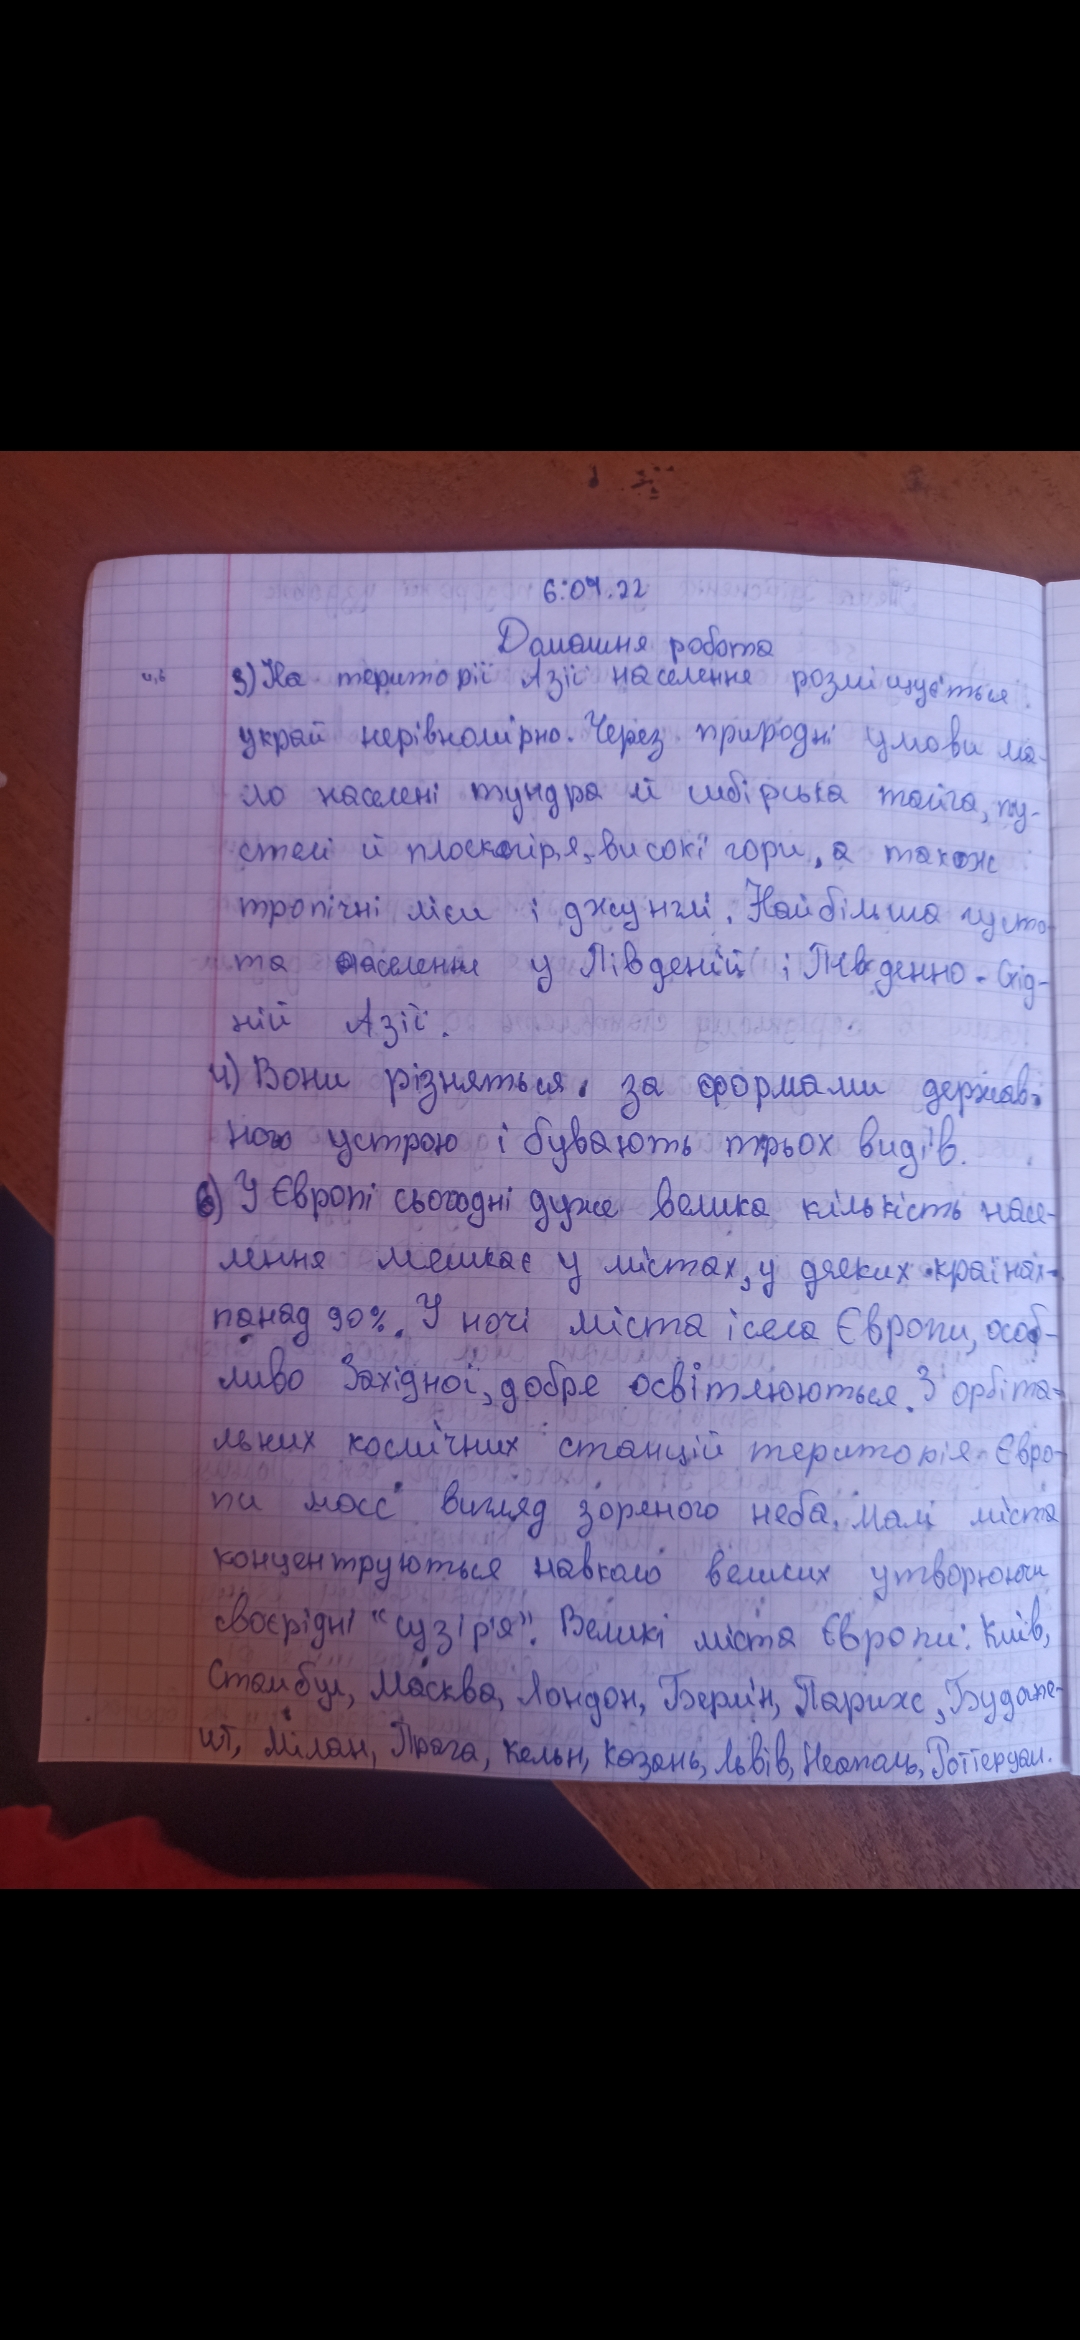 6.04.22
Домашня робота
4,6
3) На території Азії населення розміщується
украй нерівномірно. Через природні умови ма-
ло населені тундра й сибірська тайга, пу-
стелі й плоскогір'я, високі гори, а також
тропічні ліси і джунглі. Найбільша густо-
та населення у Південій і Південно-Схід-
ній Азії.
4) Вони різняться за формами держав-
ного устрою і бувають трьох видів.
6) У Європі сьогодні дуже велика кількість насе-
лення мешкає у містах, у деяких країнах-
понад 90%. У ночі міста і села Європи, особ-
ливо Західної, добре освітлюються. З орбіта-
льних космічних станцій територія Євро-
пи має вигляд зоряного неба. Малі міста
концентруються навколо великих утворюючи
своєрідні "сузір'я". Великі міста Європи: Київ,
Стамбул, Масква, Лондон, Берлін, Париж, Будапе-
шт, Мілан, Прага, Кельн, Казань, Львів, Неаполь, Роттердам.